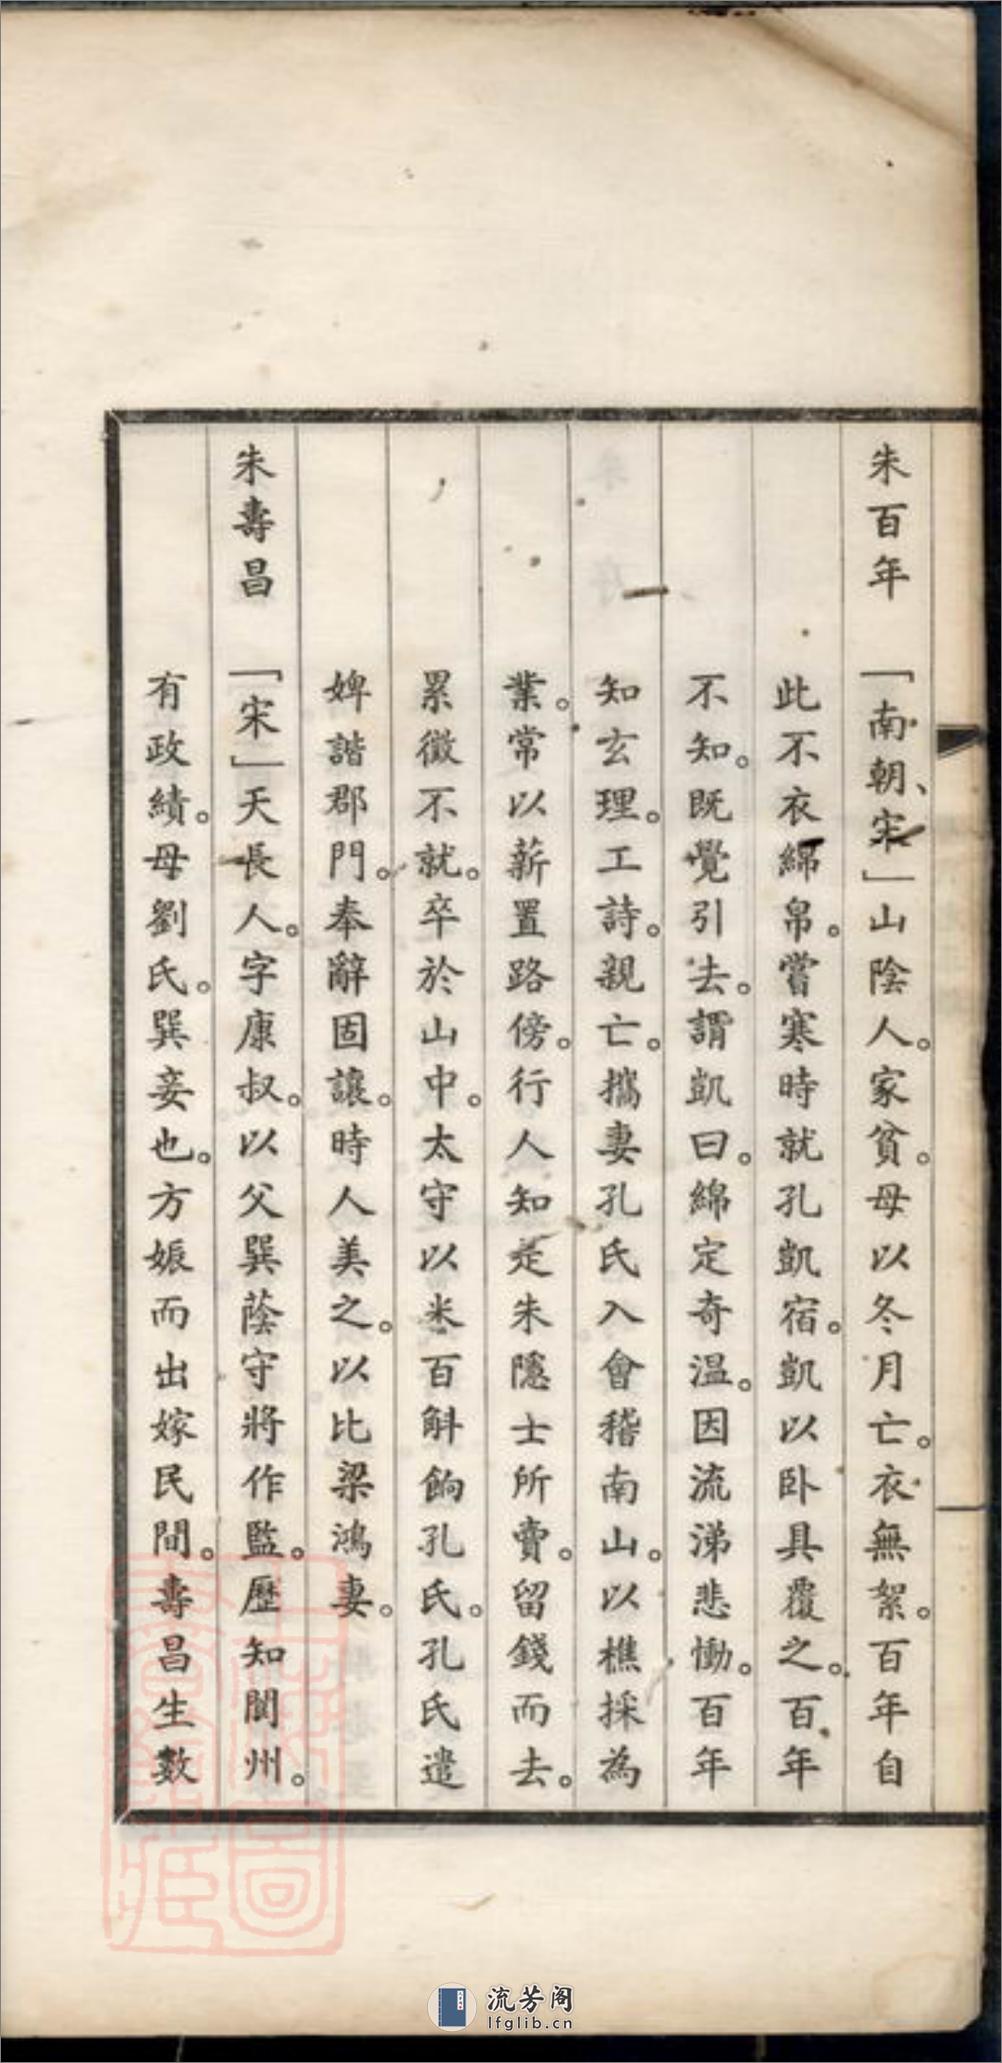 朱百年　「南朝、宋」山陰人。家貧。母以冬月亡。衣無絮。百年自
此不衣綿帛。嘗寒時就孔凱宿。凱以卧具覆之。百年
不知。既覺引去。謂凱曰。綿定奇溫。因流涕悲慟。百年
知玄理。工詩。親亡。攜妻孔氏入會稽南山。以樵採為
業。常以薪置路傍。行人知是朱隱士所賣。留錢而去。
累徵不就。卒於山中。太守以米百斛餉孔氏。孔氏遣
婢詣郡門。奉辭固讓。時人美之。以比梁鴻妻。
朱壽昌　「宋」天長人。字康叔。以父巽蔭守將作監。歷知閬州。
有政績。母劉氏。巽妾也。方娠而出嫁民間。壽昌生數
流芳阁
lfglib.cn